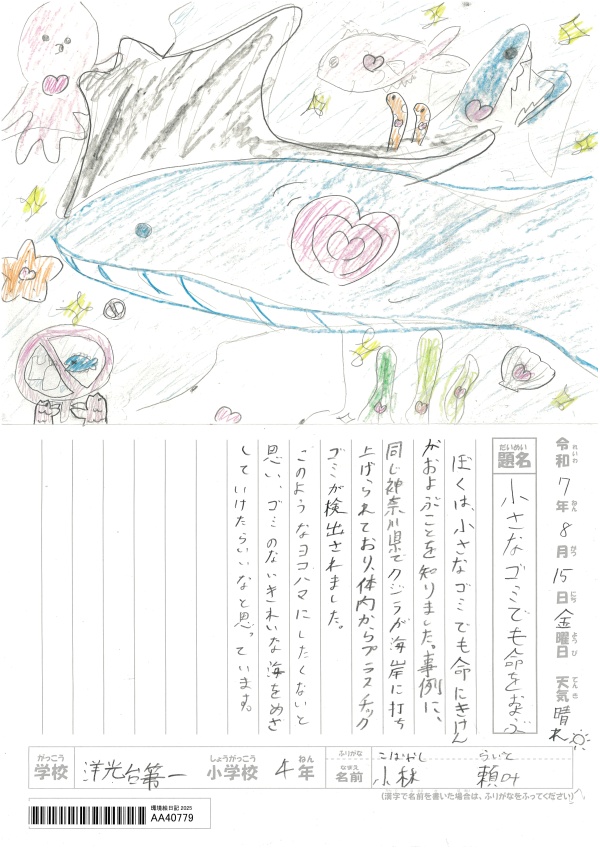 令和7年8月15日金曜日 天気 晴れ
れいわ ねん がつ にち ようび てんき
だいめい
題名 小さなゴミでも命をおよぶ
ぼくは、小さなゴミでも命にきけん
がおよぶことを知りました。事例に、
同じ神奈川県でクジラが海岸に打ち
上げられており、体内からプラスチック
ゴミが検出されました。
このようなヨコハマにしたくないと
思い、ゴミのないきれいな海をめざ
していけたらいいなと思っています。
がっこう しょうがっこう ねん
学校 洋光台第一 小学校 4年
ふりがな こばやし らいと
なまえ
名前 小林 頼叶
(漢字で名前を書いた場合は、ふりがなをふってください)
環境絵日記 2025
AA40779